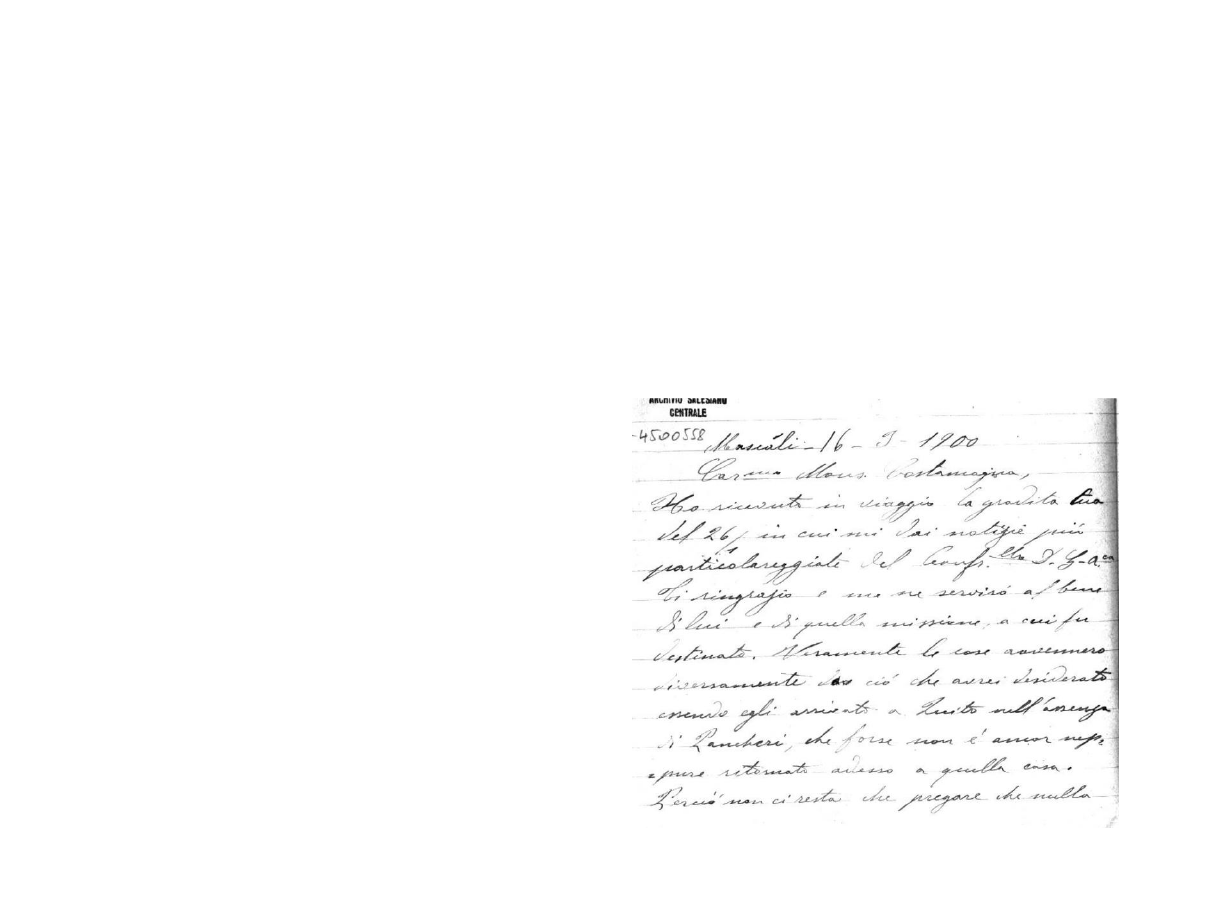 ARCHIVIO SALESIANO
CENTRALE
4500558
Mascáli - 16 - 3 - 1900
Car.mo Mons. Costamagna,
Ho ricevuto in viaggio la gradita tua
del 26/ in cui mi dai notizie più
particolareggiate del Confr.llo D. G-a
Ti ringrazio e me ne servirò al bene
di lui e di quella missione, a cui fu
destinato. Veramente le cose avvennero
diversamente da ciò che avrei desiderato
essendo egli arrivato a Quito nell'assenza
di Pancheri, che forse non é ancor nep=
=pure ritornato adesso a quella casa.
Perciò non ci resta che pregare che nulla